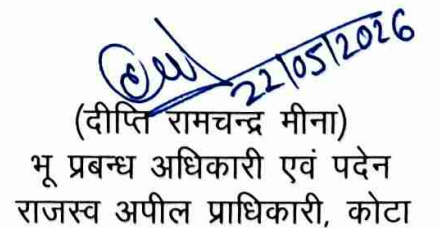 22/05/2026
(दीप्ति रामचन्द्र मीना)
भू प्रबन्ध अधिकारी एवं पदेन
राजस्व अपील प्राधिकारी, कोटा